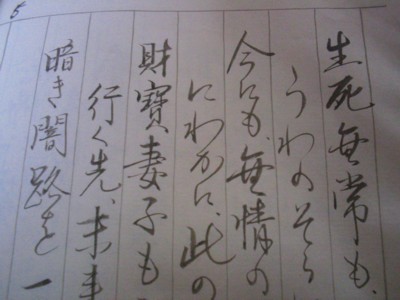 5
生死無常も、
うわのそら
今にも、無情の
にわかに、此の
財寶、妻子も
行く先、末
暗き闇路を一